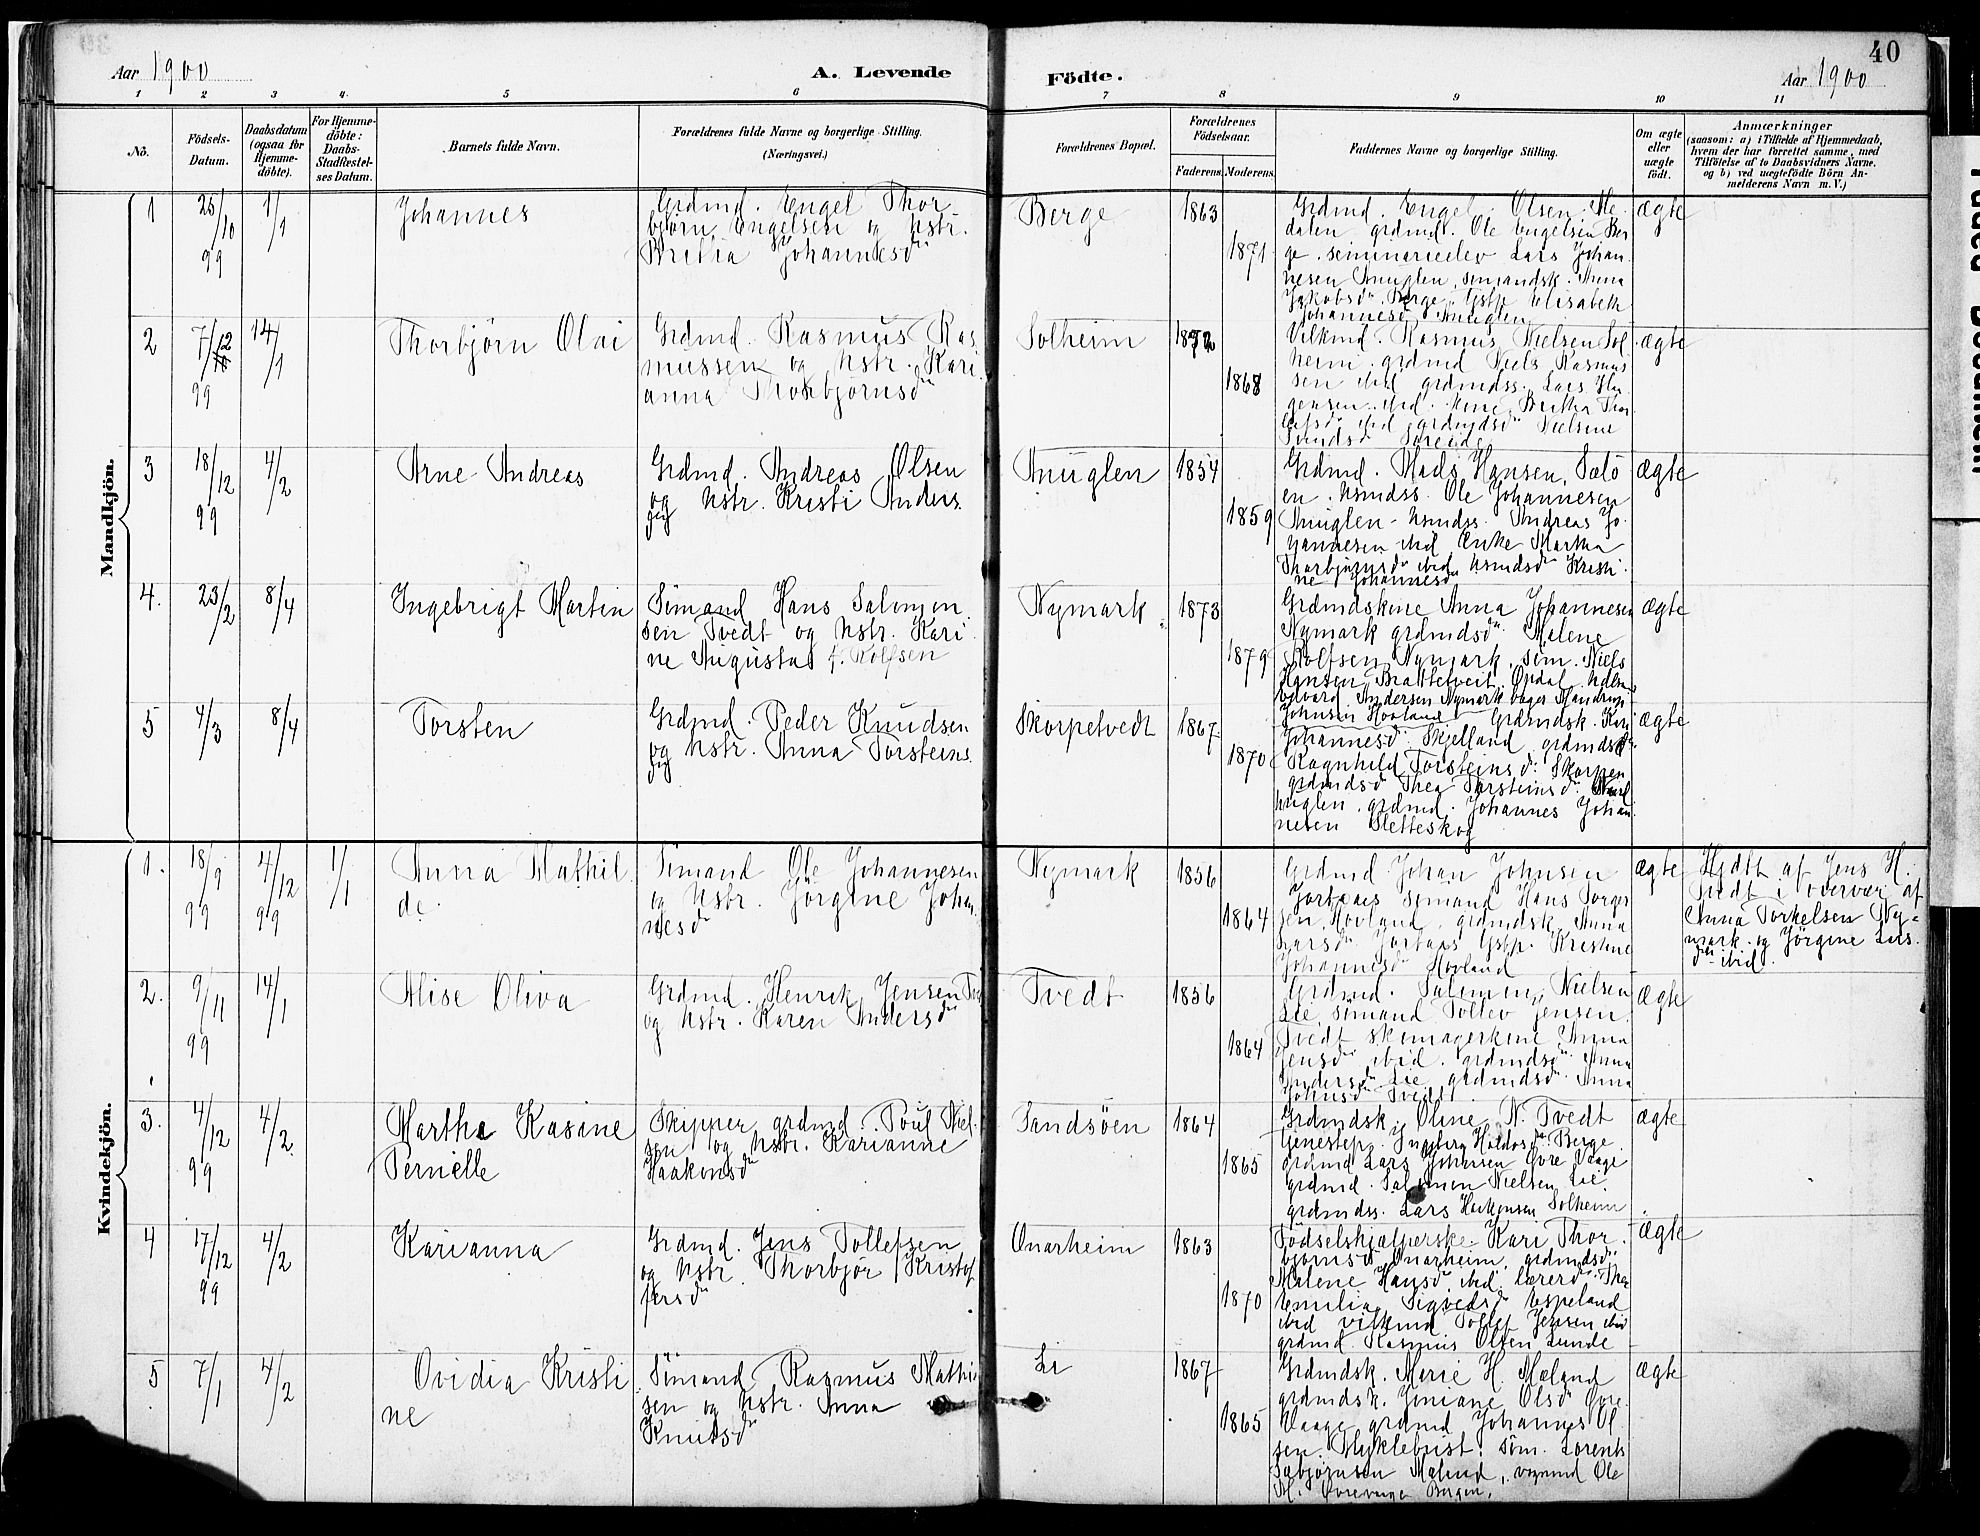 40
Aar 1900
A. Levende
Födte.
Aar 1900
1 2 3 4 5 6
7 8 9 10 11
No.
Födsels-
Datum.
Daabsdatum
(ogsaa for
Hjemme-
döbte).
For Hjemme-
döbte:
Daabs-
Stadfæstel-
ses Datum.
Barnets fulde Navn.
Forældrenes fulde Navne og borgerlige Stilling.
(Næringsvei.)
Forældrenes Bopæl.
Forældrenes
Födselsaar.
Faderens. Moderens.
Faddernes Navne og borgerlige Stilling.
Om ægte
eller
uægte
födt.
Anmærkninger
(saasom: a) i Tilfælde af Hjemmedaab,
hvem der har forrettet samme, med
Tilföielse af to Daabsvidners Navne.
og b) ved uægtefödte Börn An-
melderens Navn m. V.)
Mandkjön.
1
10
99
1/1
Johannes
Grdmd. Engel Thor
björn Engelsen og hstr.
Johannesdr
Berge
1863
1871
Grdmd. Engel Olsen
dalen grdmd. Ole Engelsen Ber
ge. seminarieelev Lars Johan
nesen Anuglen, sömandsk. Anna
Jakobsdr. Berge, Elisabeth
Johannesdr Anuglen
ægte
2
7/12
99
14/1
Thorbjörn Olai
Grdmd. Rasmus Ras
mussen og hstr. Kari
anna Thorbjörnsdr
Solheim
1872
1868
Rasmus Nielsen Sol
heim. grdmd Niels Rasmus
sen ibid grdmdss. Lars
gensen ibid. Bertha Thor
ibid grdmdsdr Nielsine
ægte
3
18/12
99
4/2
Arne Andreas
Grdmd. Andreas Olsen
og hstr. Kristi Anders
dtr
Anuglen
1854
1859
Grdmd. Mads Hansen, Sælö
en. hsmdss. Ole Johannesen
Anuglen - hsmdss. Andreas Jo
hannesen ibid Enke Martha
Thorbjörnsdr ibid hsmdsdr Kristi
ne Johannesdr
ægte
4.
23/2
8/4
Ingebrigt Martin
Sömand Hans Salomon
sen Tvedt og hstr. Kari
ne Augusta f. Rolfsen
Nymark
1873
1879
Grdmdskone Anna Johannesen
Nymark grdmdsdr Malene
Rolfsen Nymark, söm. Niels
Hansen Brattetveit, Opdal
Andersen Nymark
Johnsen Hovland
ægte
5
4/3
8/4
Torsten
Grdmd. Peder Knudsen
og hstr. Anna Torsteins
dtr
Skorpetvedt
1867
1870
Grdmdsk. Kari
Johannesdr Skjelland, grdmdsdr
Ragnhild Torsteinsdr. Skorpen
grdmdsdr Thea Torsteinsdr.
grdmd. Johannes Johan
nesen Sletteskog
ægte
Kvindekjön.
1.
18/9
99
4/12
99
1/1
Anna Mathil
de
Sömand Ole Johannesen
og hstr. Jörgine Johan
nesdr
Nymark
1856
1864
Grdmd Johan Johnsen
Jortaas Sömand Hans Torger
sen, Hovland, grdmdsk Anna
Larsdr Jortaas Kristine
Johannesdr Hovland
ægte
Hjdbt af Jens H.
Tvedt i overvær af
Anna Torkelsen Ny-
mark og Jörgine Lars
dtr ibid.
2.
9/11
99
14/1
Alise Oliva
Grdmd. Henrik Jensen
og hstr. Karen Andersdr
Tvedt
1856
1864
Grdmd. Salomon Nielsen
Lie sömand Tollev Jensen
Tvedt skomagerkone Anna
Jensdr ibid. grdmdsdr Anna
Andersdr Lie, grdmdsdr Anna
Johnsdr Tvedt
ægte
3.
4/12
99
4/2
Martha Kasine
Pernelle
Skipper grdmd Poul Niel
sen og hstr. Karianne
Haakonsdr
Sandsöen
1864
1865
Grdmdsk. Oline N. Tvedt
tjenestep. Ingeborg Berge
grdmd Lars Johnsen Övre Vaage
grdmd. Salomon Nielsen Lie
grdmdss. Lars Haakonsen Solheim
ægte
4
17/12
99
4/2
Karianna
Grdmd. Jens Tollefsen
og hstr. Thorbjör Kristof
fersdr
Onarheim
1863
1870
Födselshjælperske Kari Thor
björnsdr Onarheim, grdmdsdr
Malene Hansdr ibid, lærerdr
Emilie Sigvedsdr Espeland
ibid Tollef Jensen ibid
grdmd Rasmus Olsen Lunde
ægte
5
7/1
4/2
Ovidia Kristi
ne
Sömand Rasmus Mathi
sen og hstr. Anna
Knutsdr
Li
1867
1865
Grdmdsk. Marie H. Mæland
grdmdsk. Olsdr Övre
Vaage grdmd Johannes Ol
sen, Myklebust, söm. Lorents
Mæland, Ole
M. Bergen.
ægte